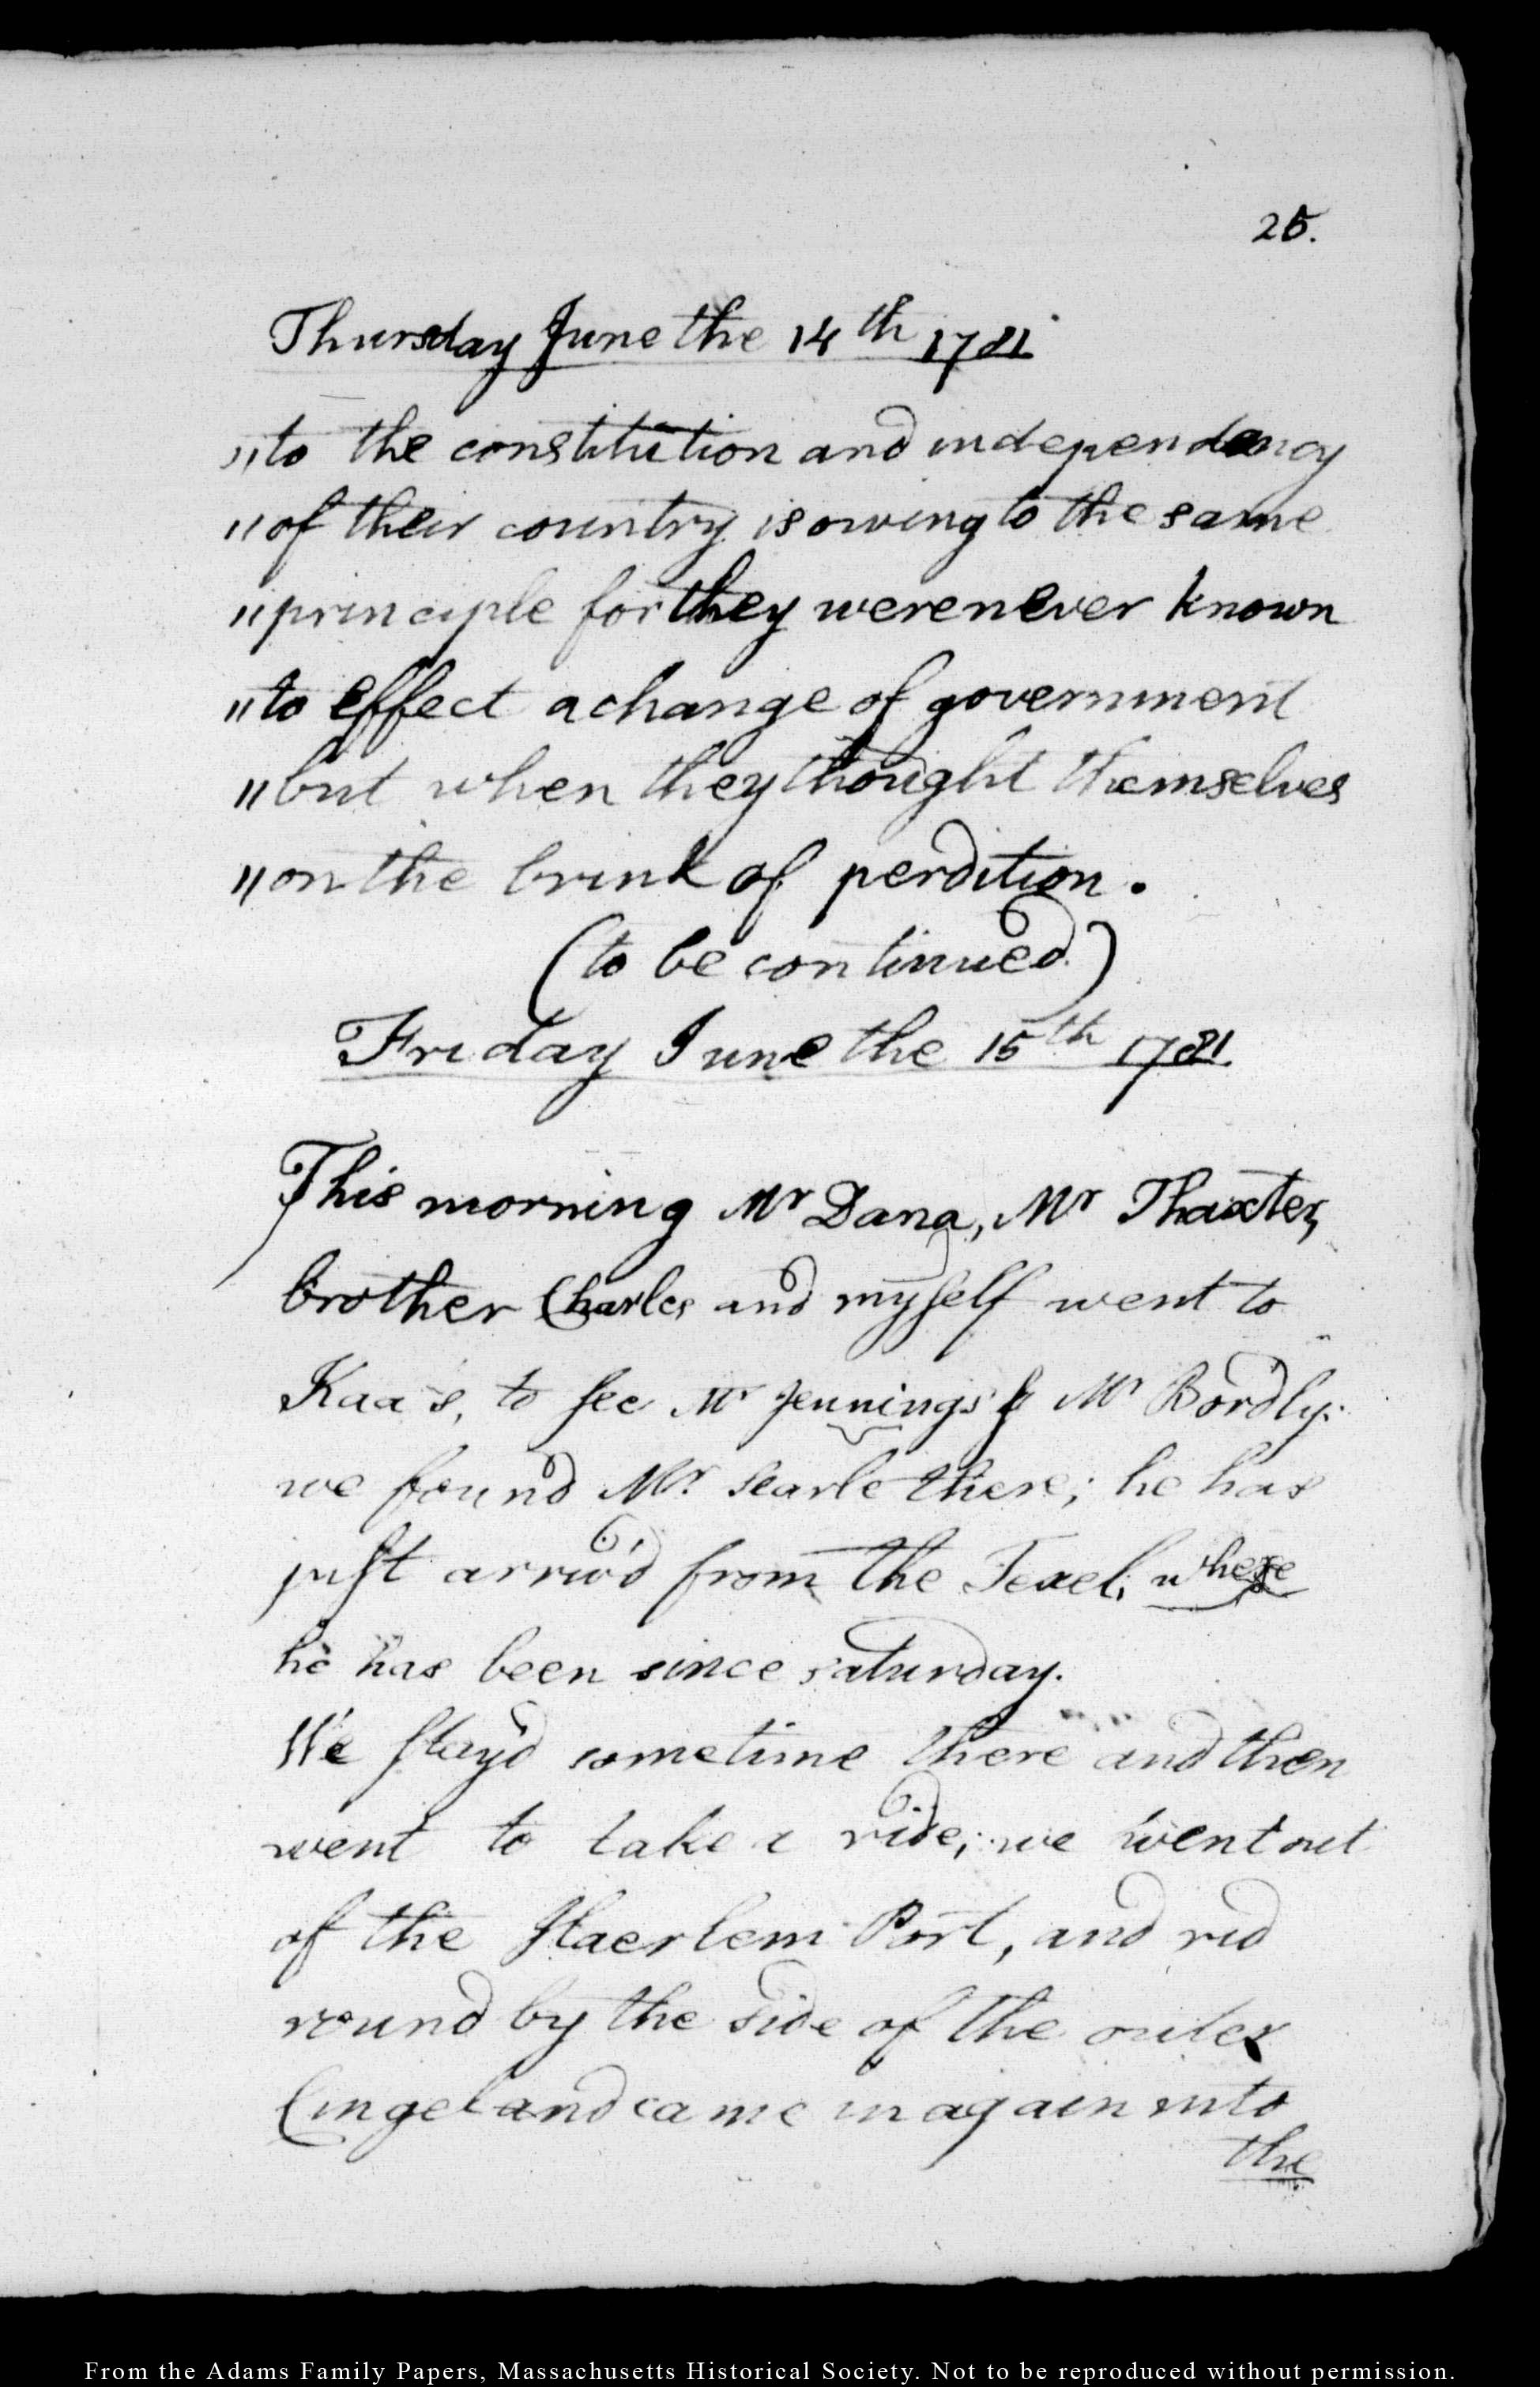 25.
Thursday June the 14th 1781
"to the constitution and independency
"of their country is owing to the same
"principle for they were never known
"to effect a change of government
"but when they thought themselves
"on the brink of perdition.
(to be continued)
Friday June the 15th 1781.
This morning Mr Dana, Mr Thaxter,
brother Charles and myself went to
Kaa's, to see Mr Jennings & Mr Bordly.
we found Mr. Searle there; he has
just arriv'd from the Texel, where
he has been since saturday.
We stay'd sometime there and then
went to take a ride; we went out
of the Haerlem Port, and rid
round by the side of the outer
Cingel and came in again into
the
From the Adams Family Papers, Massachusetts Historical Society. Not to be reproduced without permission.